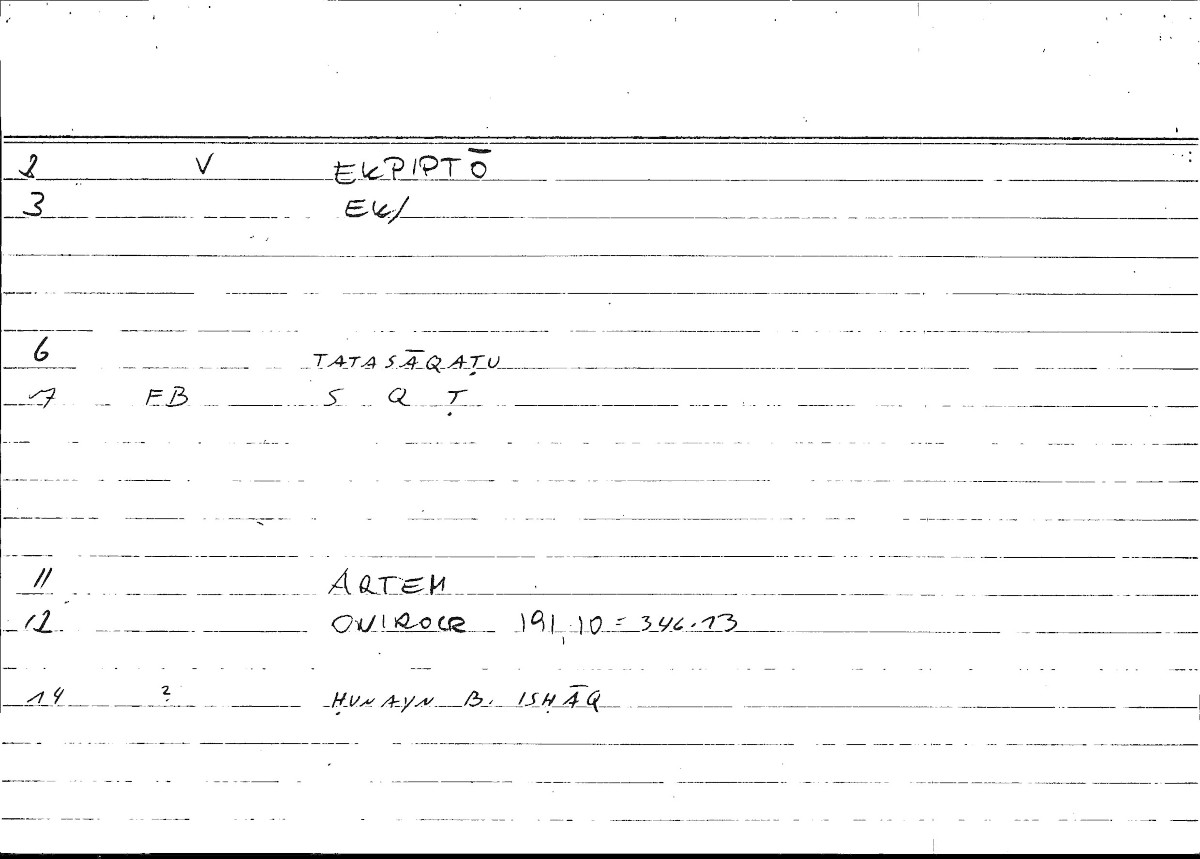 2 V EKPIPTŌ
3 EK/
6 TATASĀQAṬU
7 FB S Q Ṭ
11 ARTEM
12 ONIROCR 191,10 = 346.13
14 ? ḤUNAYN B. ISḤĀQ